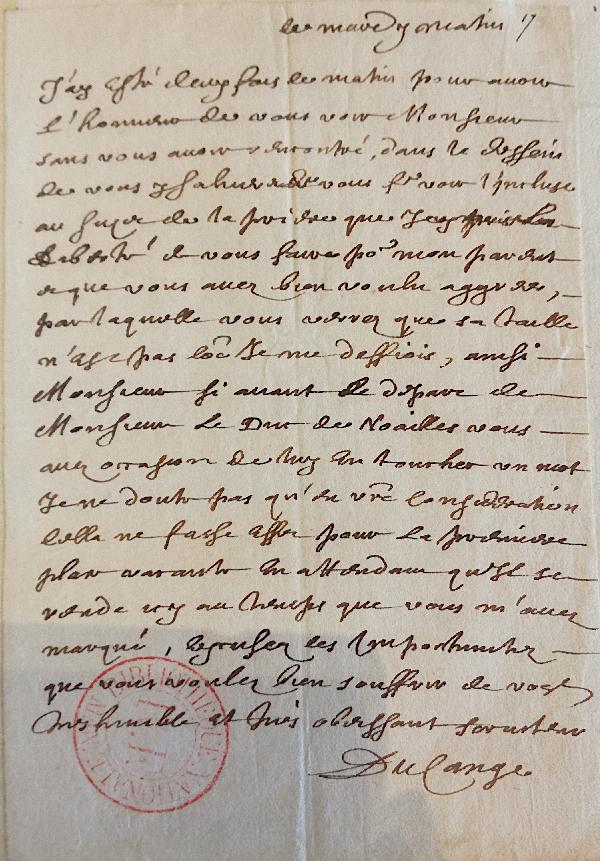 ce mardy matin 17
J'ay esté deux fois ce matin pour avoir
l'honneur de vous voir Monsieur
sans vous avoir rencontré, dans le dessein
de vous y saluer & de vous fe voir l'incluse
au sujet de la priere que J'ay pris la
liberté de vous faire po.r mon parent
& que vous avez bien voulu aggreer,
par laquelle vous verrez que sa taille
n'est pas co͞e Je me deffiois, ainsi
Monsieur si avant le depart de
Monsieur Le Duc de Noailles vous
avez occasion de luy en toucher un mot
Je ne doute pas qu'en vr̃e consideration
cela ne fasse effet pour la premiere
place vacante en attendant qu'il se
rende icy au temps que vous m'avez
marqué, excusez les Importunitez
que vous voulez bien souffrir de vostre
tres humble et tres obeissant serviteur
Du Cange
BIBLIOTHEQUE NATIONALE